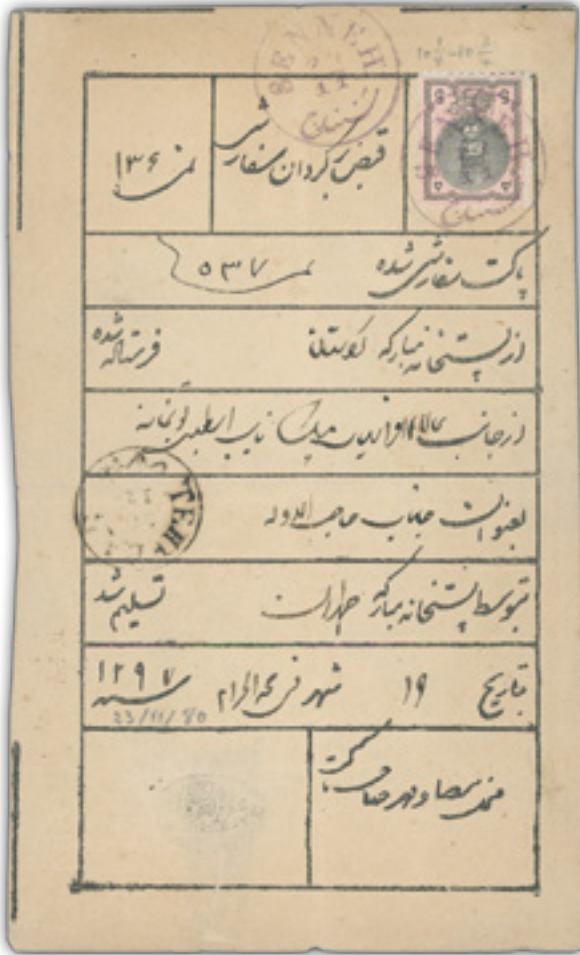 SENNEH
SENNEH
قبض برگردان سفارشی
نمره ۱۳۶
پاکت سفارشی شده نمره ۵۳۷
از پستخانه مبارکه کردستان فرستاده شده
از جانب
بعنوان جناب حاجب الدوله
بتوسط پستخانه مبارکه طهران تسلیم شد
تاریخ ۱۹ شهر ذی حجه الحرام سنه ۱۲۹۷
23/11/80
TEH
محل امضا و مهر صاحب پاکت